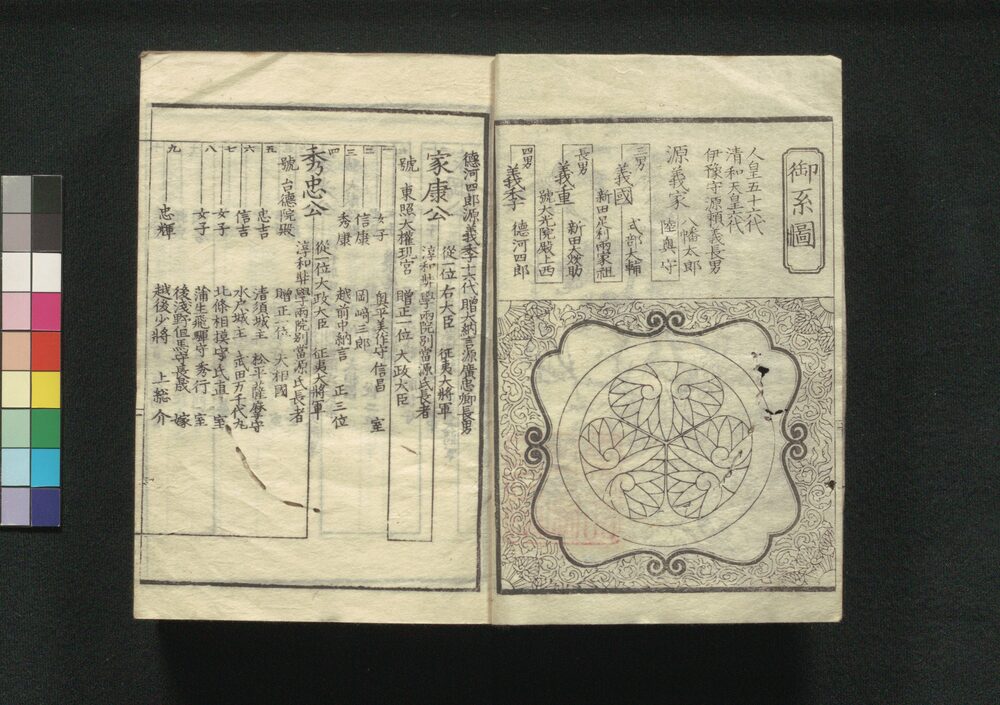 御系圖
人皇五十六代
清和天皇六代
伊豫守源頼義長男
源義家 八幡太郎 陸奥守
三男 義國 式部大輔 新田足利両家祖
長男 義重 新田大炊助 號大光院殿上西
四男 義季 德河四郎
德河四郎源義季十六代贈大納言源廣忠卿長男
家康公 從一位右大臣 征夷大將軍
淳和弉學両院別當源氏長者
號 東照大權現宮 贈正一位 大政大臣
一 女子 奥平美作守信昌 室
二 信康 岡﨑三郎
三 秀康 越前中納言 正三位
四 秀忠公 從一位大政大臣 征夷大將軍
淳和弉學両院別當源氏長者
號 台德院殿 贈正一位 大相國
五 忠吉 清須城主 松平薩摩守
六 信吉 水戸城主 武田万千代丸
七 女子 北條相摸守氏直 室
八 女子 蒲生飛驒守秀行 室
後淺野但馬守長晟 嫁
九 忠輝 越後少將 上総介